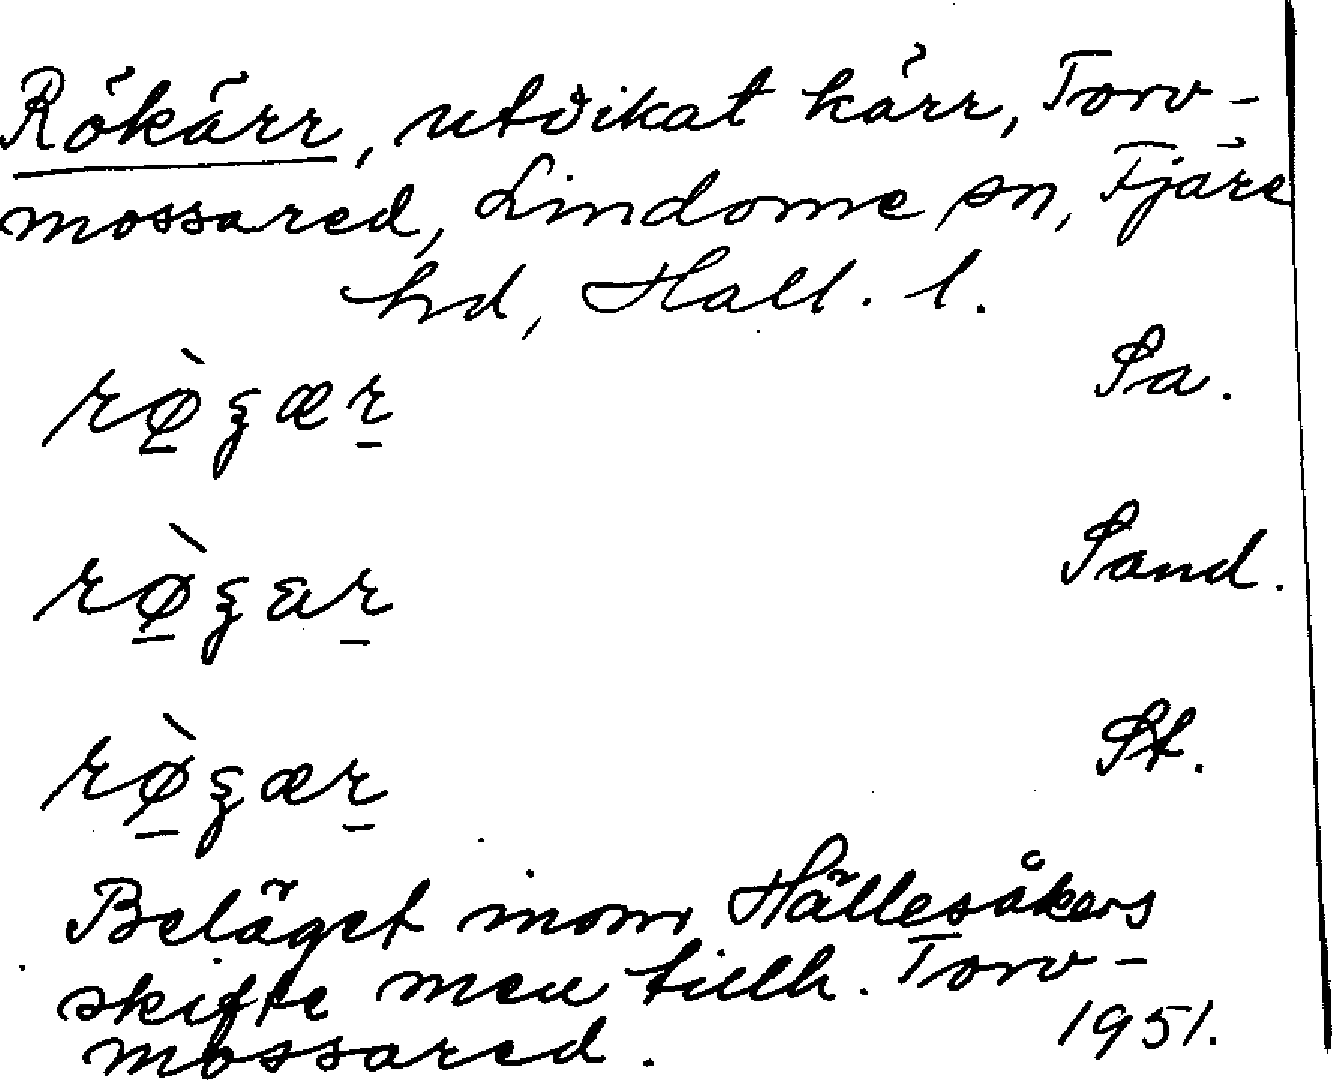 Rökärr, utdikat kärr, Torv-
mossared, Lindome sn, Fjäre
hd, Hall. l.
rø̱̀ʒæṟ Sa.
rø̱̀ʒaṟ Sand.
rø̱̀ʒæṟ St.
Beläget inom Hällesåkers
skifte men tillh. Torv-
mossared. 1951.